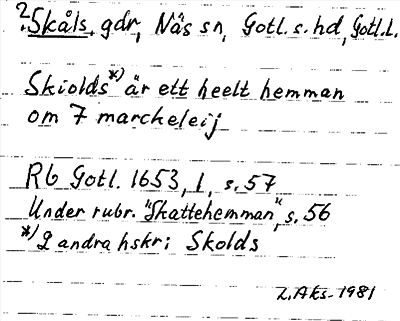 ?Skåls, gdr, Näs sn, Gotl. s. hd, Gotl. l.
Skiolds*) är ett heelt hemman
om 7 marcheleij
Rb Gotl. 1653, 1, s. 57
Under rubr. "Skattehemman", s. 56
*) 2 andra hskr: Skolds
L. Aks- 1981